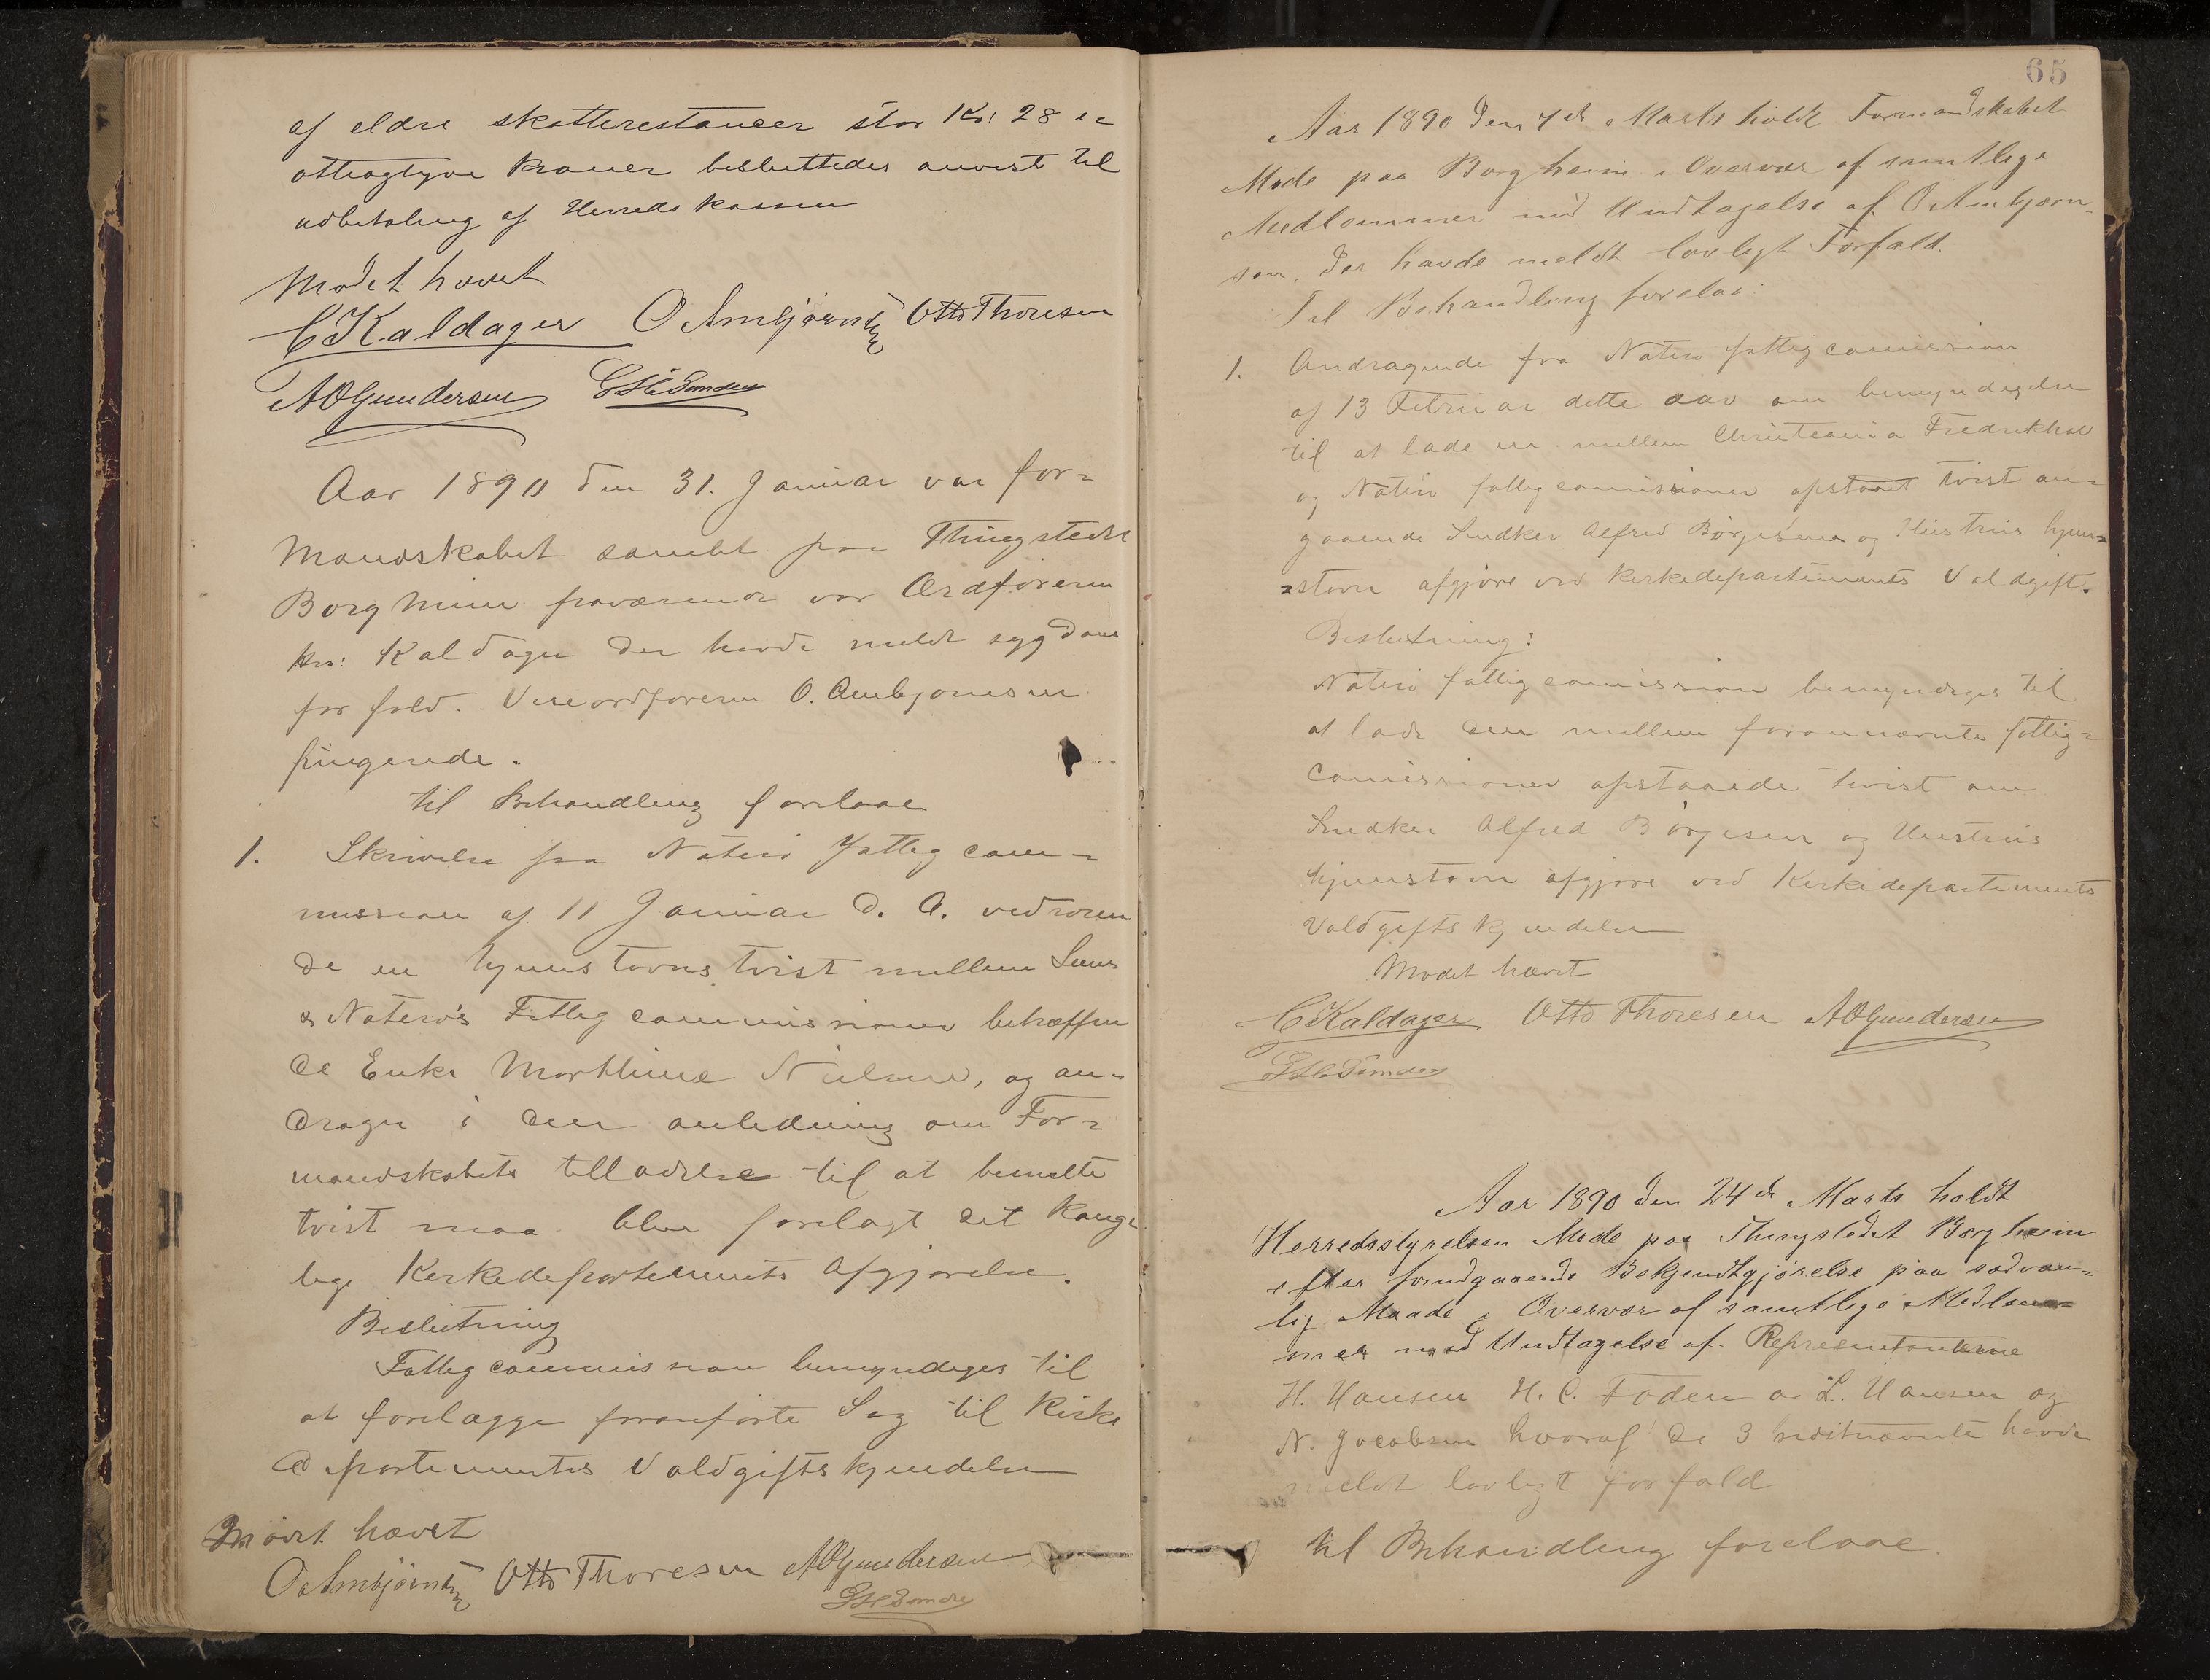 af eldre skatterestancer stor Kr: 28 er
otteogtyve kroner besluttedes anvist til
udbetaling af Herredskassen
Mødet hævet
C Kaldager O Ambjørnsen Otto Thoresen
A O Gundersen
Aar 1890 den 31. Januar var for=
mandskabet samlet paa Thingstedet
Borgheim fraværende var Ordføreren
Hr: Kaldager der havde meldt sygdoms
forfald. Viseordføreren O. Ambjørnsen
fungerede.
til Behandling forelaae
1. Skrivelse fra Nøterø Fattigcom=
mission af 11 Januar d. A. vedrøren
de en hjemstavns tvist mellem Sems
& Nøterøs Fattigcommissioner betræffen
de Enke Marthine Nielsen, og an=
drager i den anledning om For=
mandskabets tilladelse til at bemelte
tvist maa blive forelagt det Konge
lige Kirkedepartements Afgjørelse.
Beslutning
Fattigcommissionen bemyndiges til
at forelægge foranførte Sag til Kirke
departementes Voldgiftskjendelse
Mødet hævet
O Ambjørnsen Otto Thoresen A O Gundersen
65
Aar 1890 den 7de Marts holdt Formandskabet
Møde paa Borgheim i Overvær af samtlige
Medlemmer med Undtagelse af O Ambjørn-
sen, der havde meldt lovligt Forfald.
Til Behandling forelaa:
1. Andragende fra Nøterø fattigcomission
af 13 Februar dette aar om bemyndigelse
til at lade en mellem Christiania Fredrikhal
og Nøterø fattigcomissioner opstaaet tvist an=
gaaende Snedker Alfred Børjesen og Hustrus hjem=
=stavn afgjøre ved Kirkedepartements Voldgift.
Beslutning:
Nøterø fattigcomission bemyndiges til
at lade den mellem forannævnte fattig=
comissioner opstaaede tvist om
Snedker Alfred Børjesen og Hustrus
hjemstavn afgjøre ved Kirkedepartements
Voldgiftskjendelse
Mødet hævet
C Kaldager Otto Thoresen A O Gundersen
Aar 1890 den 24de Marts holdt
Herredsstyrelsen Møde paa Thingstedet Borgheim
efter forudgaaende Bekjendtgjørelse paa sædvan=
lig Maade i Overvær af samtlige Medlem-
mer med Undtagelse af Representanterne
H. Hansen H. C. Foden L. Hansen og
N. Jacobsen hvoraf de 3 sidstnævnte havde
meldt lovligt forfald
til Behandling forelaae.